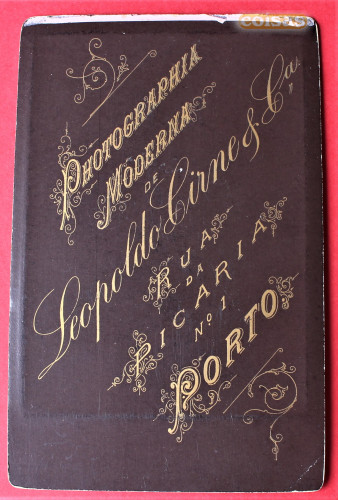 coisas
PHOTOGRAPHIA
MODERNA
DE
Leopoldo Cirne & Ca,,
RUA
DA
PICARIA
No. 1
PORTO